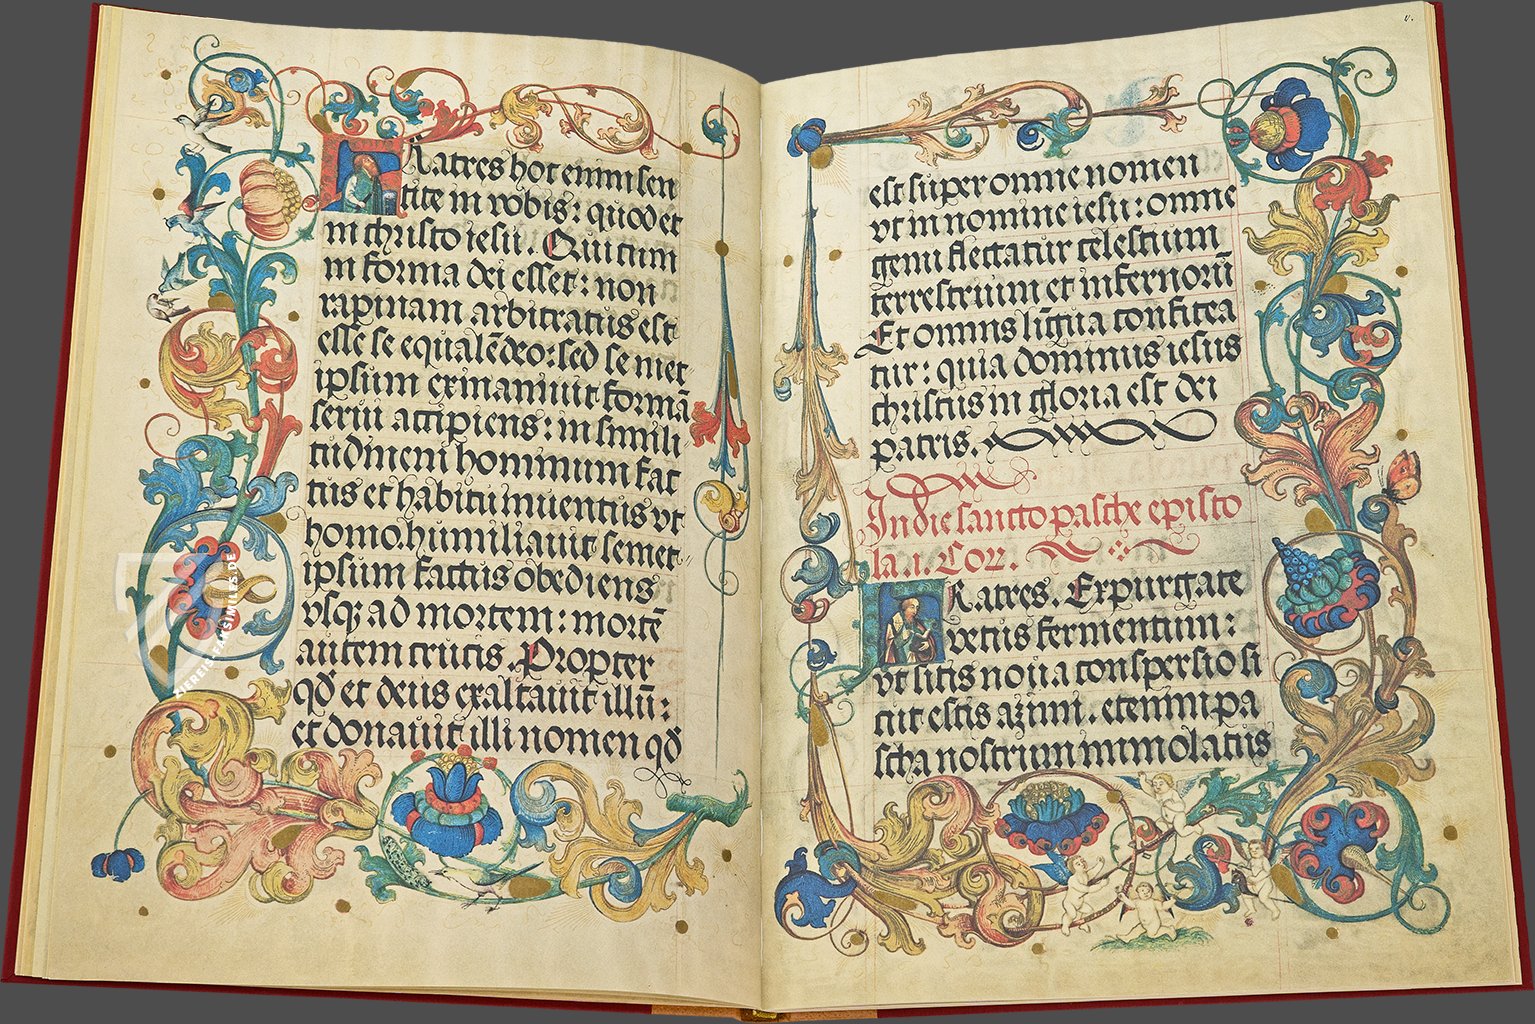 Fratres hoc enim sen
tite in vobis: quod et
in christo iesu. Qui cum
in forma dei esset: non
rapinam arbitratus est
esse se equalē deo: sed se met
ipsum exinanivit formā
servi accipiens: in simili
tudinem hominum fac
tus et habitu inventus vt
homo. humiliavit semet
ipsum factus obediens
vsqȝ ad mortem: mortē
autem crucis. Propter
qđ et deus exaltavit illū:
et donavit illi nomen qđ
v.
est super omne nomen
vt in nomine iesu: omne
genu flectatur celestium
terrestrium et infernorū
Et omnis līgua confitea
tur: quia dominus iesus
christus in gloria est dei
patris.
In die sancto pasche episto
la .i. Cor.
Fratres. Expurgate
vetus fermentum:
vt sitis nova conspersio si
cut estis azimi. etenim pa
scha nostrum immolatus
ZIEREIS FAKSIMILES.DE